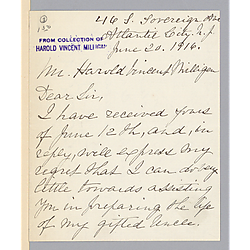 46 S. Sovereign Ave
Atlantic City. N.J.
FROM COLLECTION OF
HAROLD VINCENT MILLIGAN
June 20. 1916.
Mr. Harold Vincent Milligan
Dear Sir,
I have received yours
of June 12th, and, in
reply, will express my
regret that I can do very
little towards assisting
you in preparing the life
of my gifted Uncle.